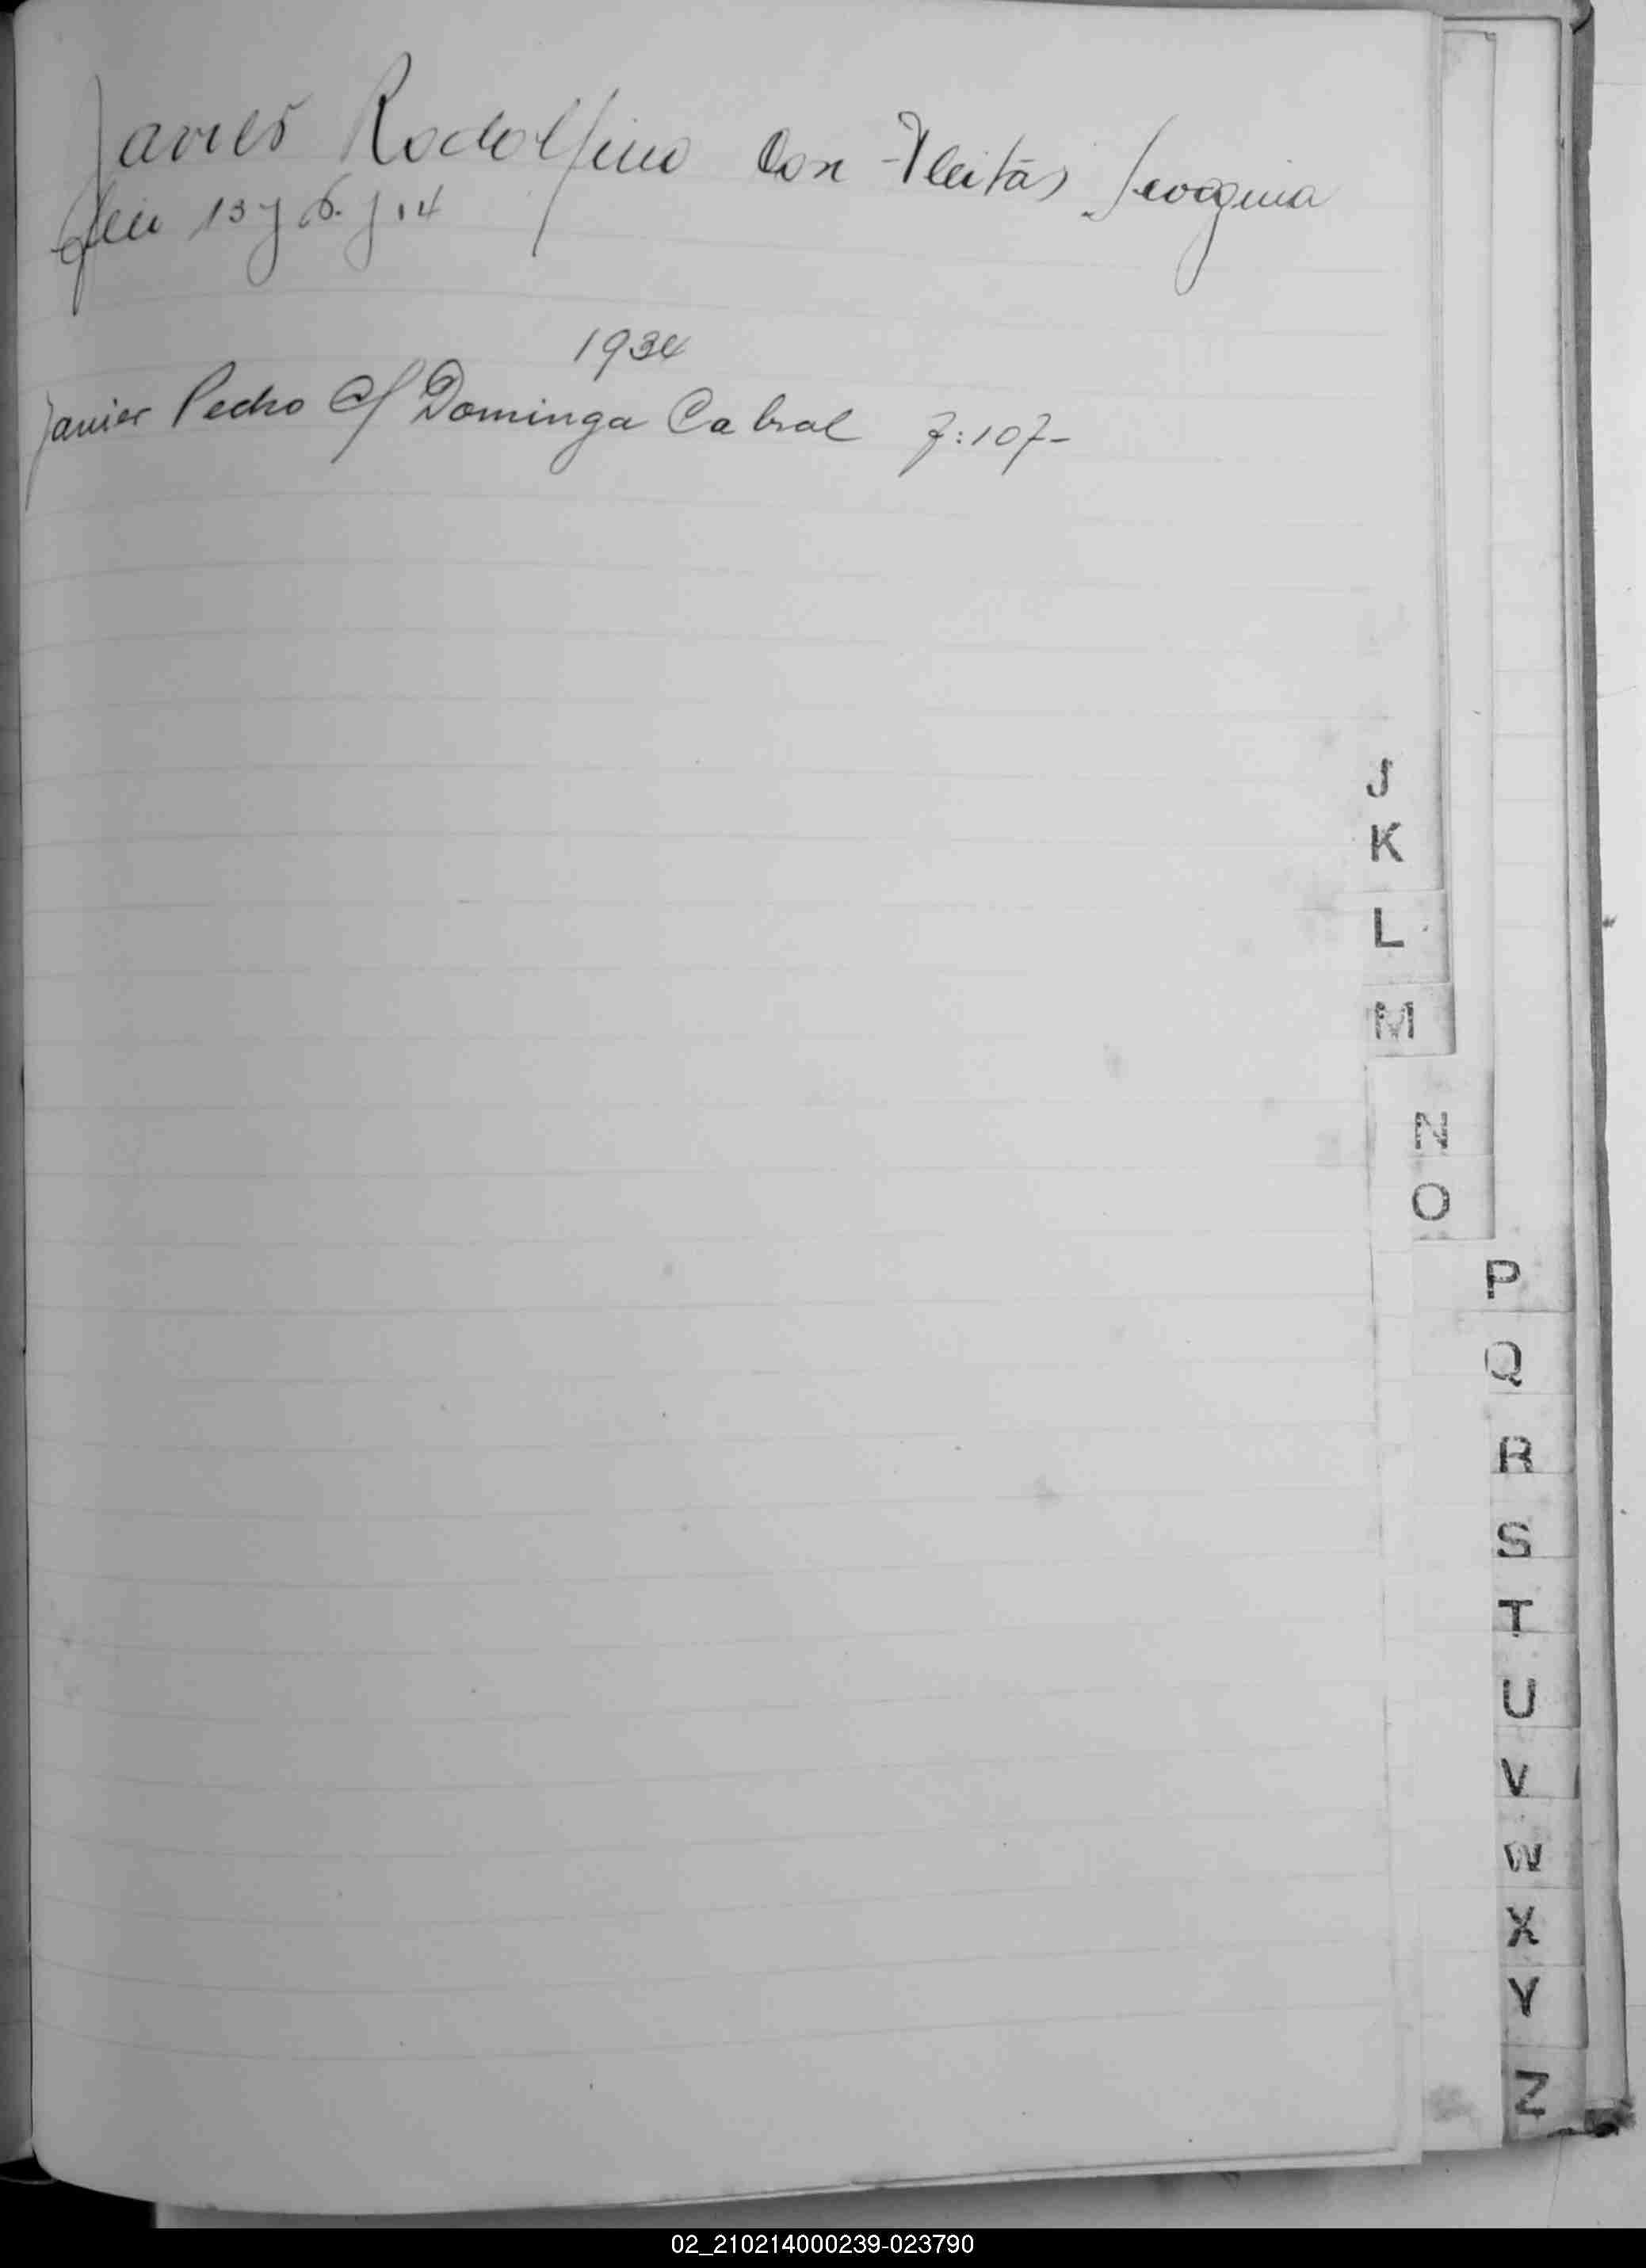 Javier Rodolfino Con Fleitas
13 y 14
1934
Javier Pedro C/ Dominga Cabral F:107-
J
K
L
M
N
O
P
Q
R
S
T
U
V
W
X
Y
Z
02_210214000239-023790